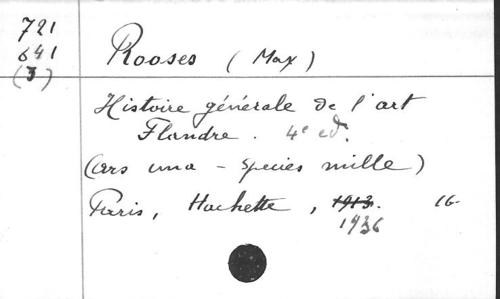 721
641
(3)
Rooses (Max)
Histoire générale de l'art
Flandre. 4e ed.
(ars una - species mille)
Paris, Hachette, 1913. 16.
1936